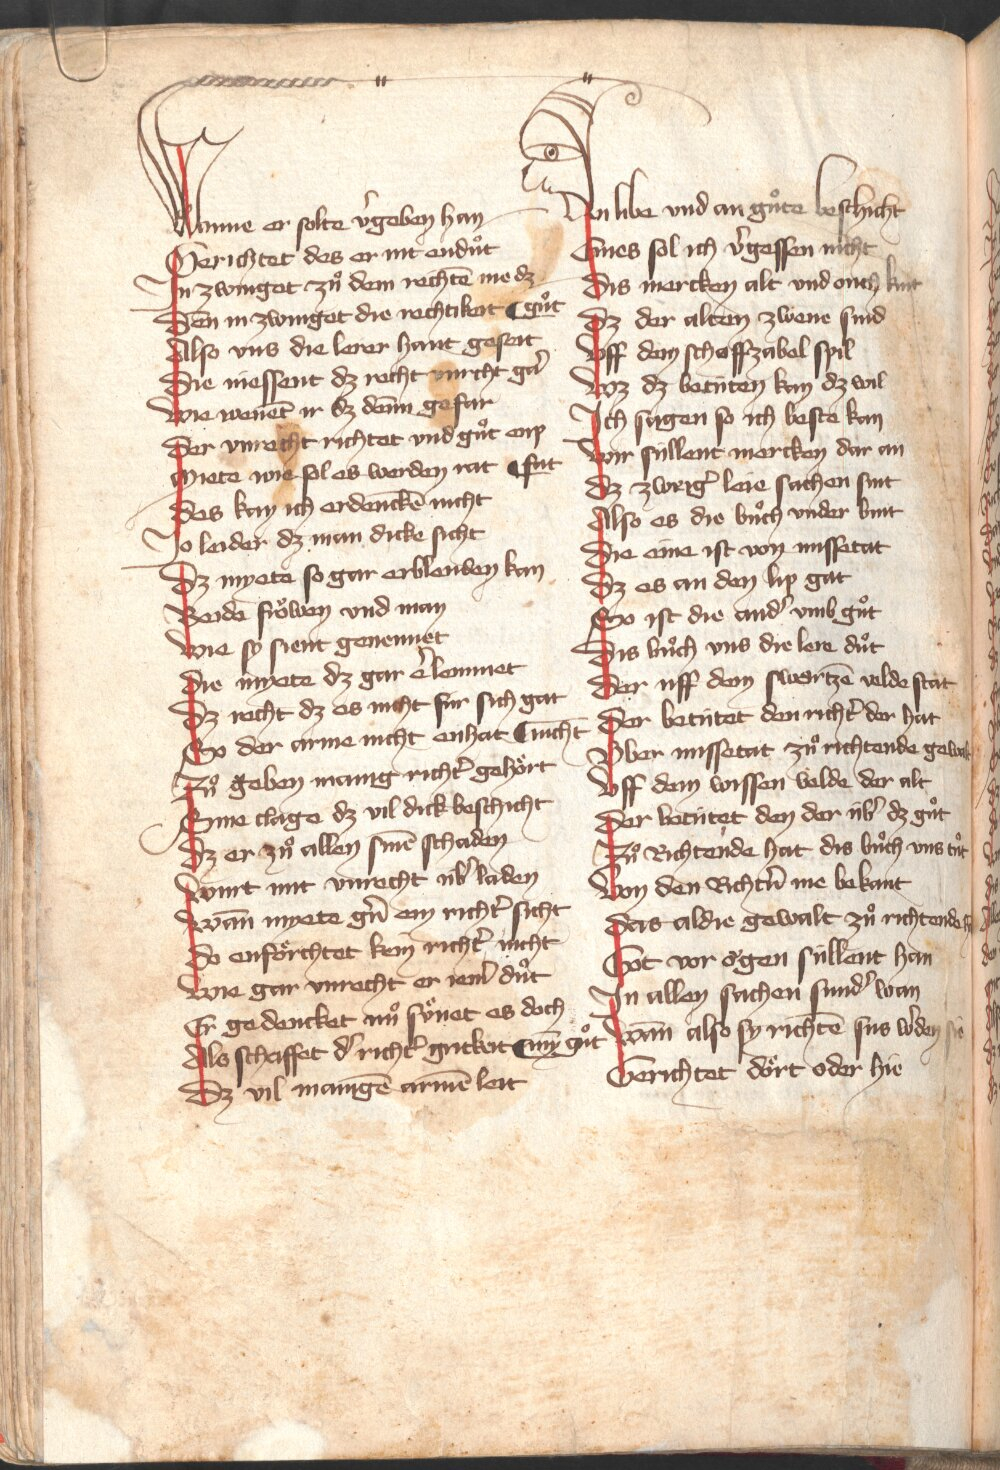 Wanne er solte v'geben han
Gerichtet des er nit enduͦt
In zwinget zuͦ dem rechtē me dz
Den in zwinget die rechtikeit ¶ guͦt
Also vns die lerer hant geseit
Die niessent dz recht vnrcht gar
Wie wenēt ir dz denn gefar
Der vnrecht richtet vnd guͦt enp
Miete wie sol es werden rat ¶ fat
Des kan ich erdenckē nicht
Jo leider dz man dicke sicht
Dz myete so gar erblenden kan
Beide froͤwen vnd man
Wie sy sient genennet
Die myete dz gar e'lemmet
Dz recht dz es nicht für sich gat
So der arme nicht enhat ¶ nicht
Zuͦ geben manig richt' gehoͤrt
Eine clage dz vil dick beschicht
Dz er zuͦ allen sinē schaden
Wirt mit vnrecht vb' laden
Wān myete gn' ein richt' sicht
Do enfoͤrchtet kein richt' nicht
Wie gar vnrecht er iem' duͦt
Er gedencket nuͦ suͤnet es doch
Als schaffet d' richt' gritkeit ¶ min guͦt
Dz vil manigē armē leit
An libe vnd an guͦte beschicht
Eines sol ich v'gessen nicht
Dis mercken alt vnd ouch kint
Dz der alten zwene sind
Vff dem schaffzabel spil
Wz dz betüten kan dz wil
Ich sagen so ich beste kan
Wir süllent mercken dar an
Dz zweig' leie sachen sint
Also es die buͦch vnder bint
Die eine ist von missetat
Dz es an den lip gat
So ist die and' vmb guͦt
Dis buͦch vns die lere duͦt
Der uff dem swartzē velde stat
Der betütet den richt' der hat
Vber missetat zuͦ richtende gewalt
Vff dem wissen velde der alt
Der betütet den der üb' dz guͦt
Zuͦ Richtende hat dis buͦch vns tuͦt
Von den Richt'n me bekant
Das aldie gewalt zuͦ richtende
Got vor oͤgen süllent han
In allen sachen sund' wan
Wān also sy richtē sus w'den sie
Gerichtet doͤrt oder hie